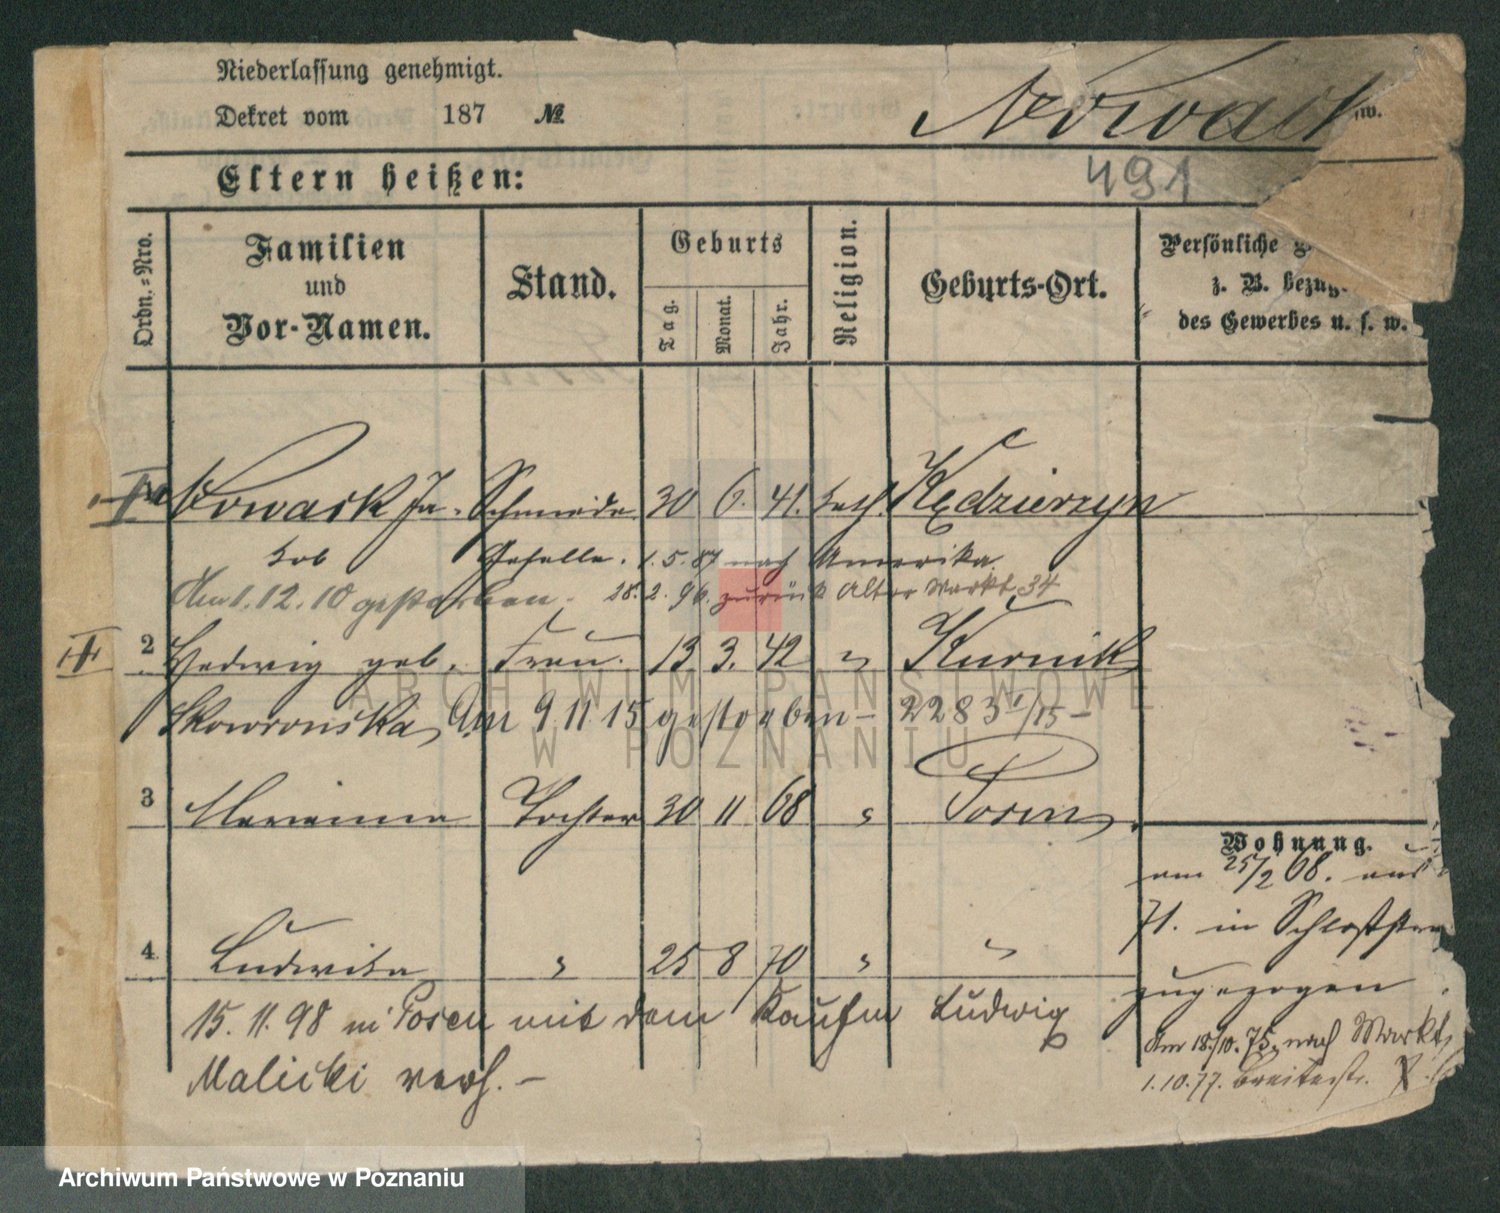 Niederlassung genehmigt.
Dekret vom 187 №
Nowack
w.
Eltern heißen:
491
Ordn.=Nro.
Familien und Vor-Namen.
Stand.
Geburts
Tag.
Monat.
Jahr.
Religion.
Geburts-Ort.
Persönliche
z. B. bezüg.
des Gewerbes u. s. w.
Nowack Ja- Schmiede 30 6. 41. kath. Kędzierzyn
kob Geselle. 1.5.87 nach Amerika
Am 1.12.10 gestorben. 28.2.96. zurück Alter Markt 34
2 Hedwig geb. Frau. 13 3. 42 " Kurnik
Skowronska, Am 9.11.15 gestorben – 2283 1/15 –
3 Marianna Tochter 30 11 68 " Posen
4 Ludwika " 25 8 70 " "
15.11.98 in Posen mit dem Kaufm Ludwig
Malicki verh. –
Wohnung.
am 25/2 68. aus
71. in Schloßstr
zugezogen
Am 18/10.75. nach Markt
1.10.77. Breitestr.
ARCHIWUM PAŃSTWOWE
W POZNANIU
Archiwum Państwowe w Poznaniu